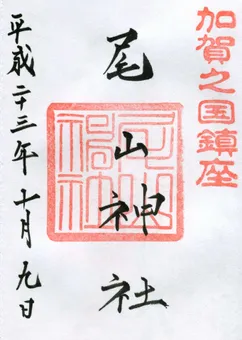 加賀之国鎮座
尾山神社
平成二十三年十月九日
尾山神社